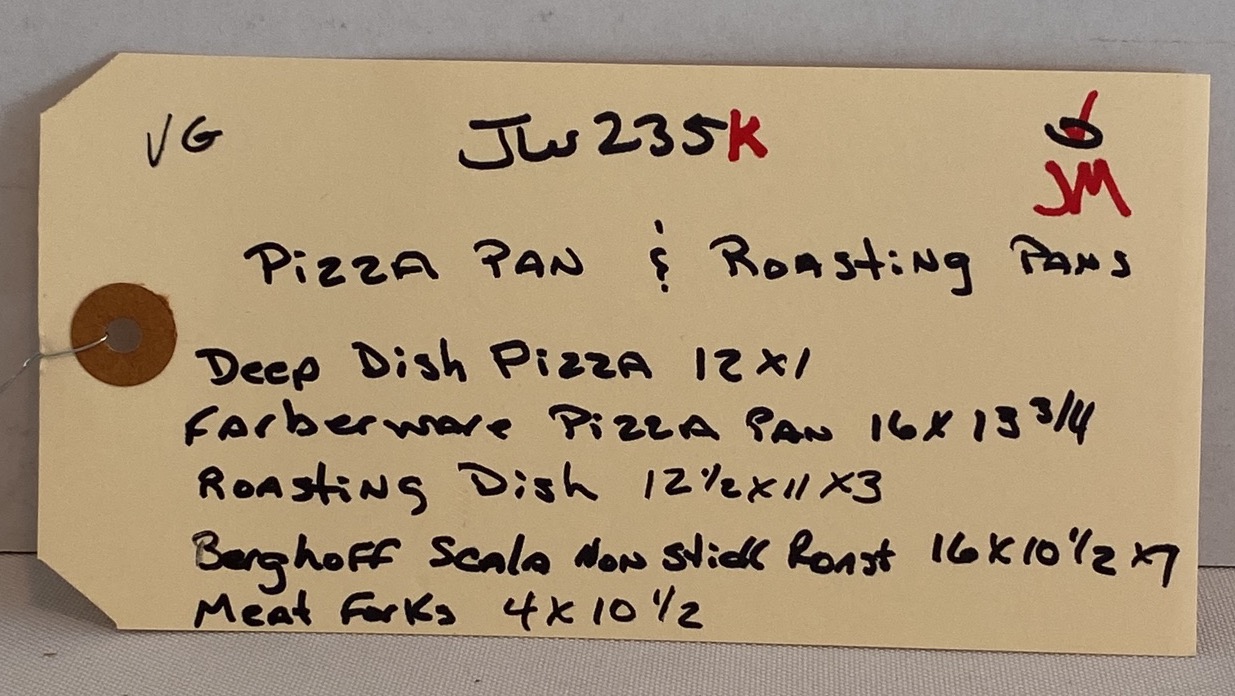 VG JW235K
JM
Pizza Pan & Roasting Pans
Deep Dish Pizza 12x1
Farberware Pizza Pan 16x13 3/4
Roasting Dish 12 1/2x11x3
Berghoff Scala Non Stick Roast 16x10 1/2x7
Meat Forks 4x10 1/2